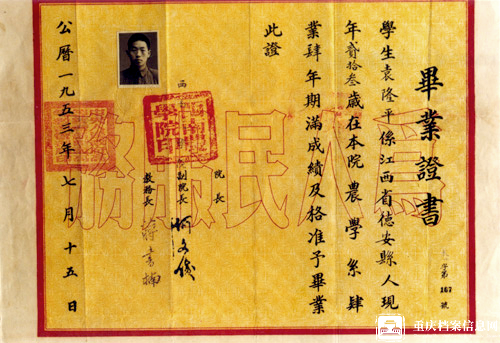 畢業證書
學第 167 號
學生袁隆平係江西省德安縣人現
年貳拾叁歲在本院農學系肆
業肆年期滿成績及格准予畢業
此證
院長
副院長 何文俊
教務長
公曆一九五三年七月十五日
為人民服務
學院印
重庆档案信息网